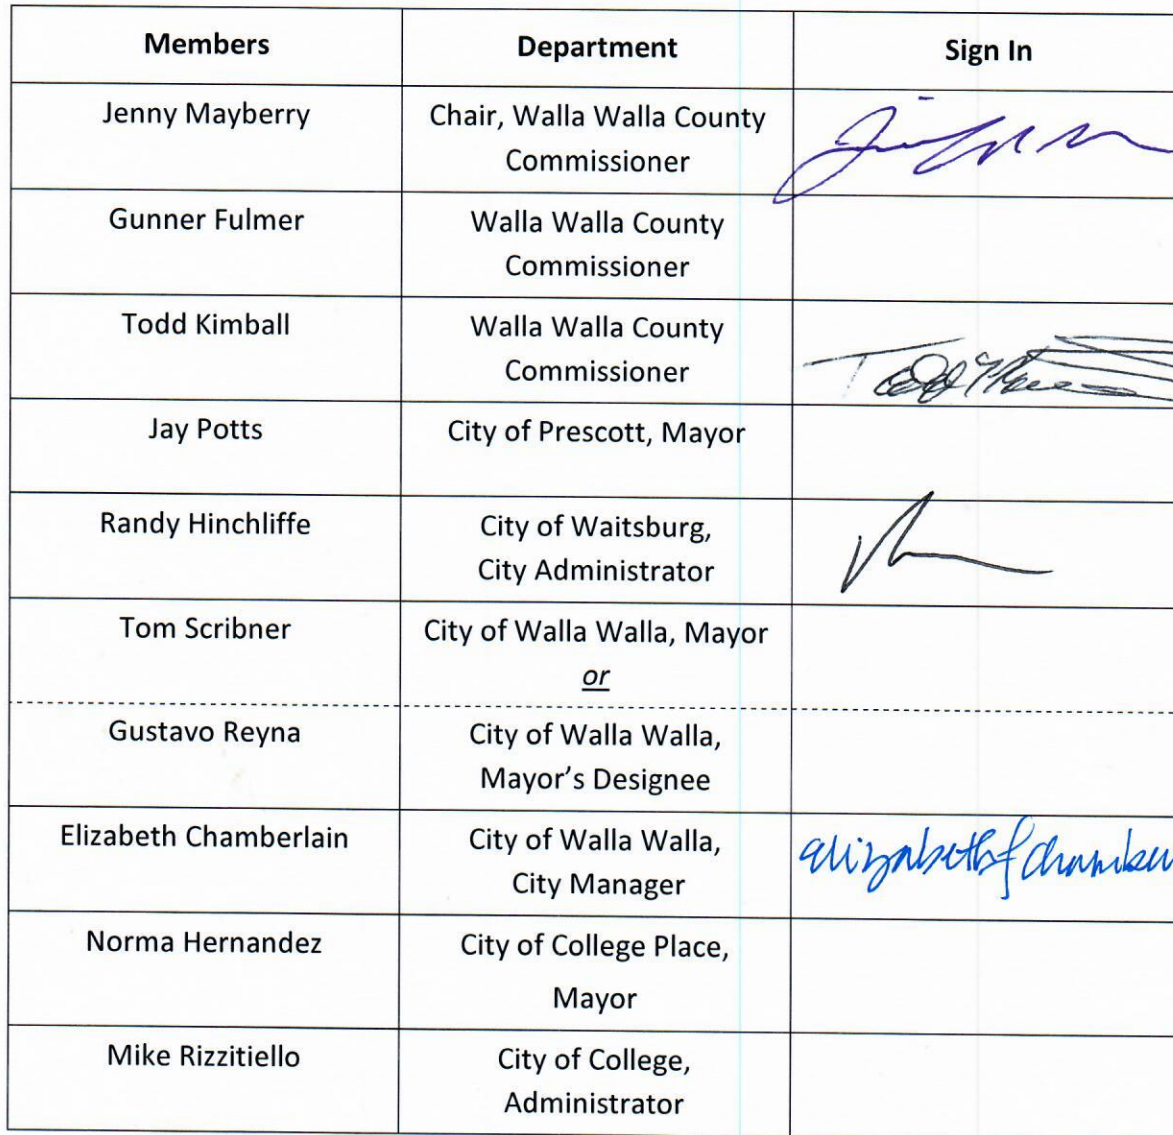 Members Department Sign In
Jenny Mayberry Chair, Walla Walla County
Commissioner
Gunner Fulmer Walla Walla County
Commissioner
Todd Kimball Walla Walla County
Commissioner
Todd
Jay Potts City of Prescott, Mayor
Randy Hinchliffe City of Waitsburg,
City Administrator
Tom Scribner City of Walla Walla, Mayor
or
Gustavo Reyna City of Walla Walla,
Mayor's Designee
Elizabeth Chamberlain City of Walla Walla,
City Manager
Norma Hernandez City of College Place,
Mayor
Mike Rizzitiello City of College,
Administrator